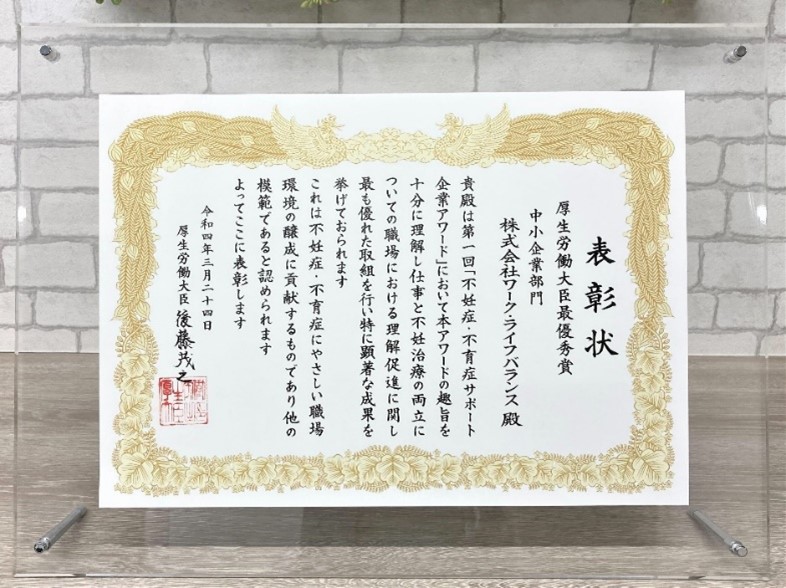 表彰状
厚生労働大臣最優秀賞
中小企業部門
株式会社ワーク・ライフバランス 殿
貴殿は第一回「不妊症・不育症サポート
企業アワード」において本アワードの趣旨を
十分に理解し仕事と不妊治療の両立に
ついての職場における理解促進に関し
最も優れた取組を行い特に顕著な成果を
挙げておられます
これは不妊症・不育症にやさしい職場
環境の醸成に貢献するものであり他の
模範であると認められます
よってここに表彰します
令和四年三月二十四日
厚生労働大臣 後藤茂之